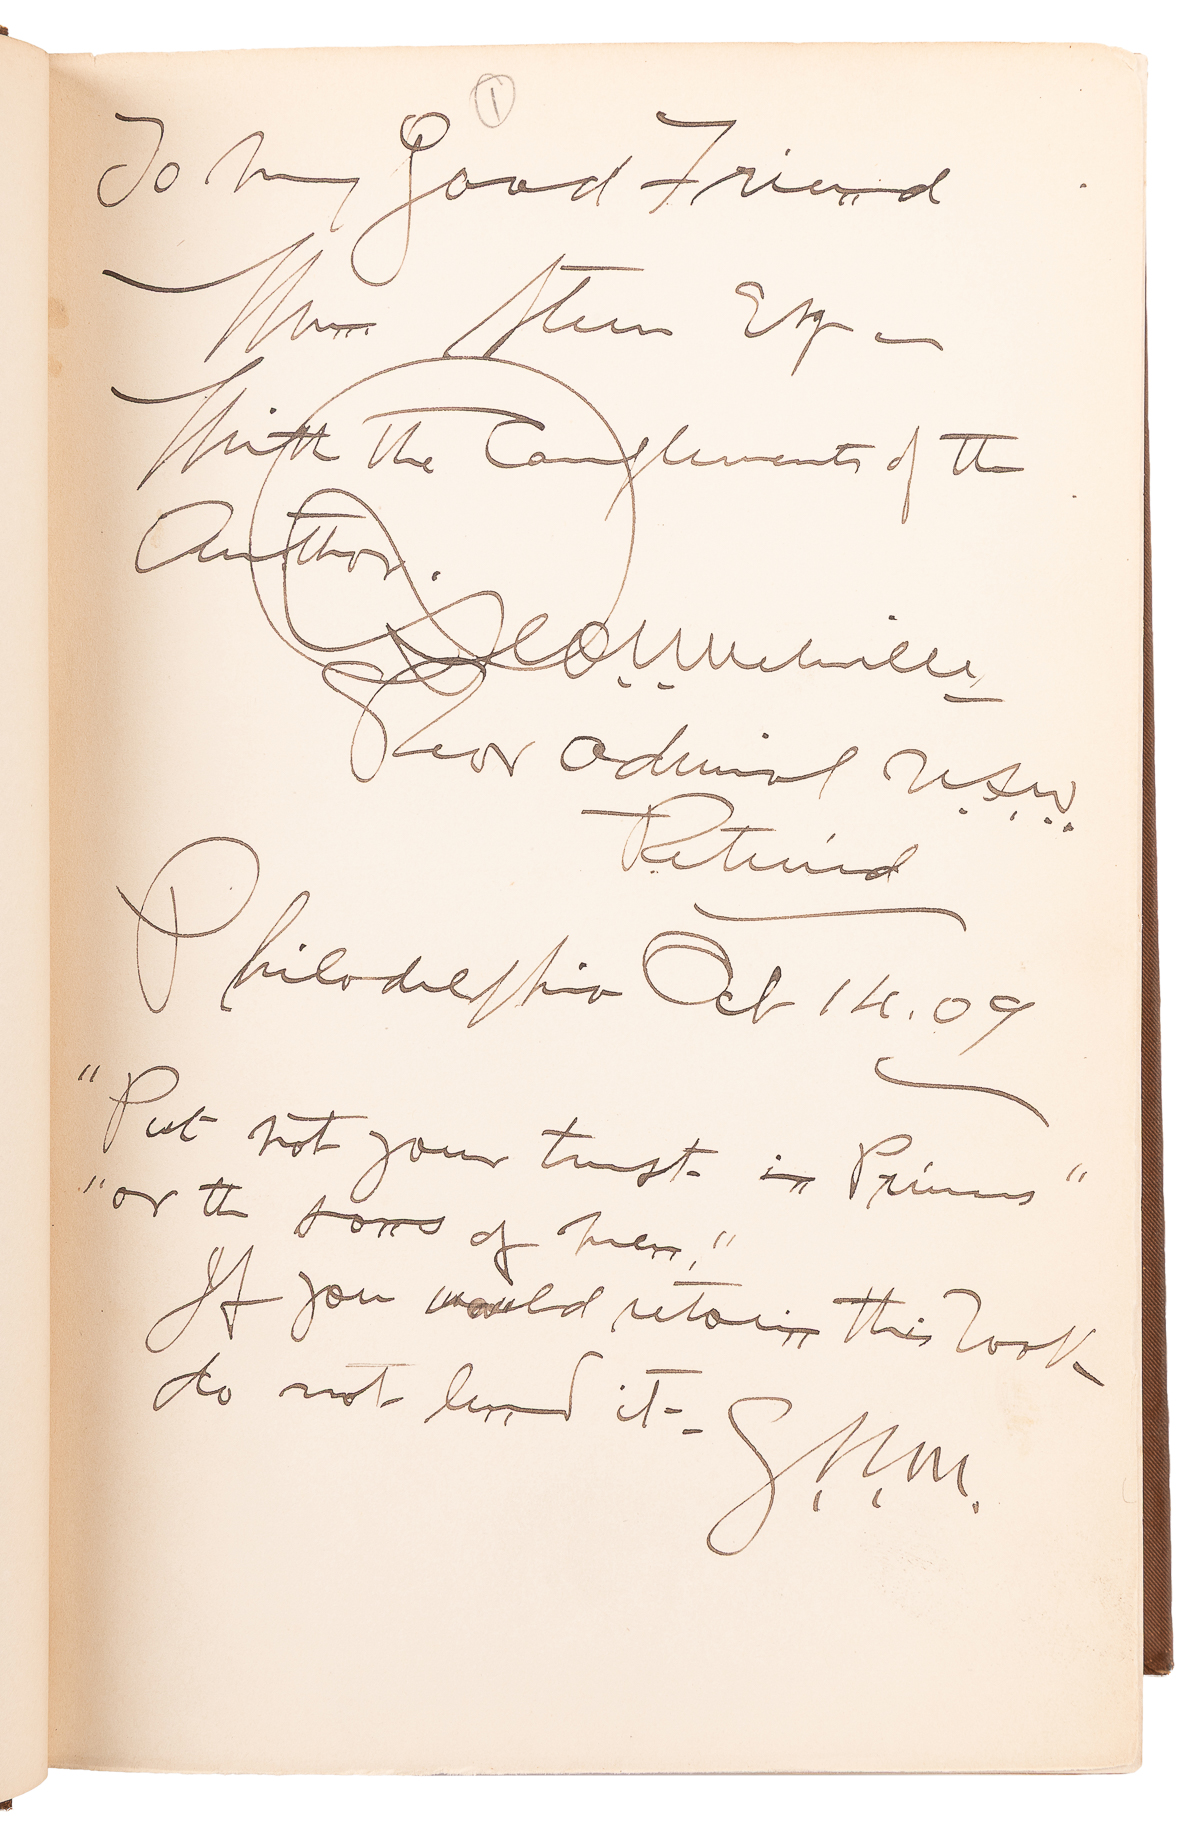 1
To my Good Friend
Wm. Stein Esq —
With the Compliments of the
Author.
Geo W Melville
Rear admiral U.S.N.
Retired
Philadelphia Oct 14. 09
"Put not your trust in Princes"
"or the sons of men,"
If you would retain this Book
do not lend it —
G. W. M.